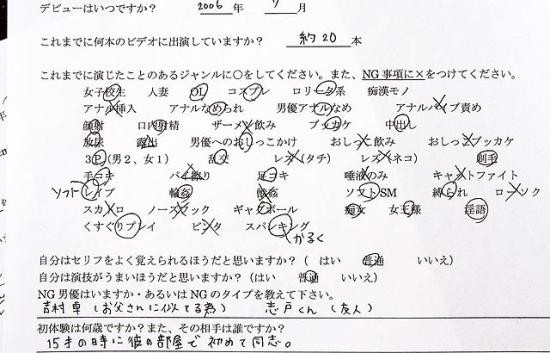 デビューはいつですか？ 2006 年 7 月
これまでに何本のビデオに出演していますか？ 約20 本
これまでに演じたことのあるジャンルに○をしてください。また、NG事項に×をつけてください。
女子校生 人妻 OL コスプレ ロリータ系 痴漢モノ
アナル挿入 アナルなめられ 男優アナルなめ アナルバイブ責め
顔射 口内射精 ザーメン飲み ブッカケ 中出し
放尿 露出 男優へのおしっこかけ おしっこ飲み おしっこブッカケ
3P(男2、女1) 乱交 レズ(タチ) レズ(ネコ) 剃毛
手コキ パイ擦り 足コキ 唾液のみ キャットファイト
ソフト レイプ 輪姦 ソフトSM 縛られ ローソク
スカトロ ノーズフック ギャグボール 痴女 女王様 淫語
くすぐりプレイ ビンタ スパンキング
かるく
自分はセリフをよく覚えられるほうだと思いますか？（はい 普通 いいえ）
自分は演技がうまいほうだと思いますか？（はい 普通 いいえ）
NG男優はいますか・あるいはNGのタイプを教えて下さい。
吉村卓（お父さんに似てる為） 志戸くん（友人）
初体験は何歳ですか？また、その相手は誰ですか？
15才の時に彼の部屋で初めて同志。